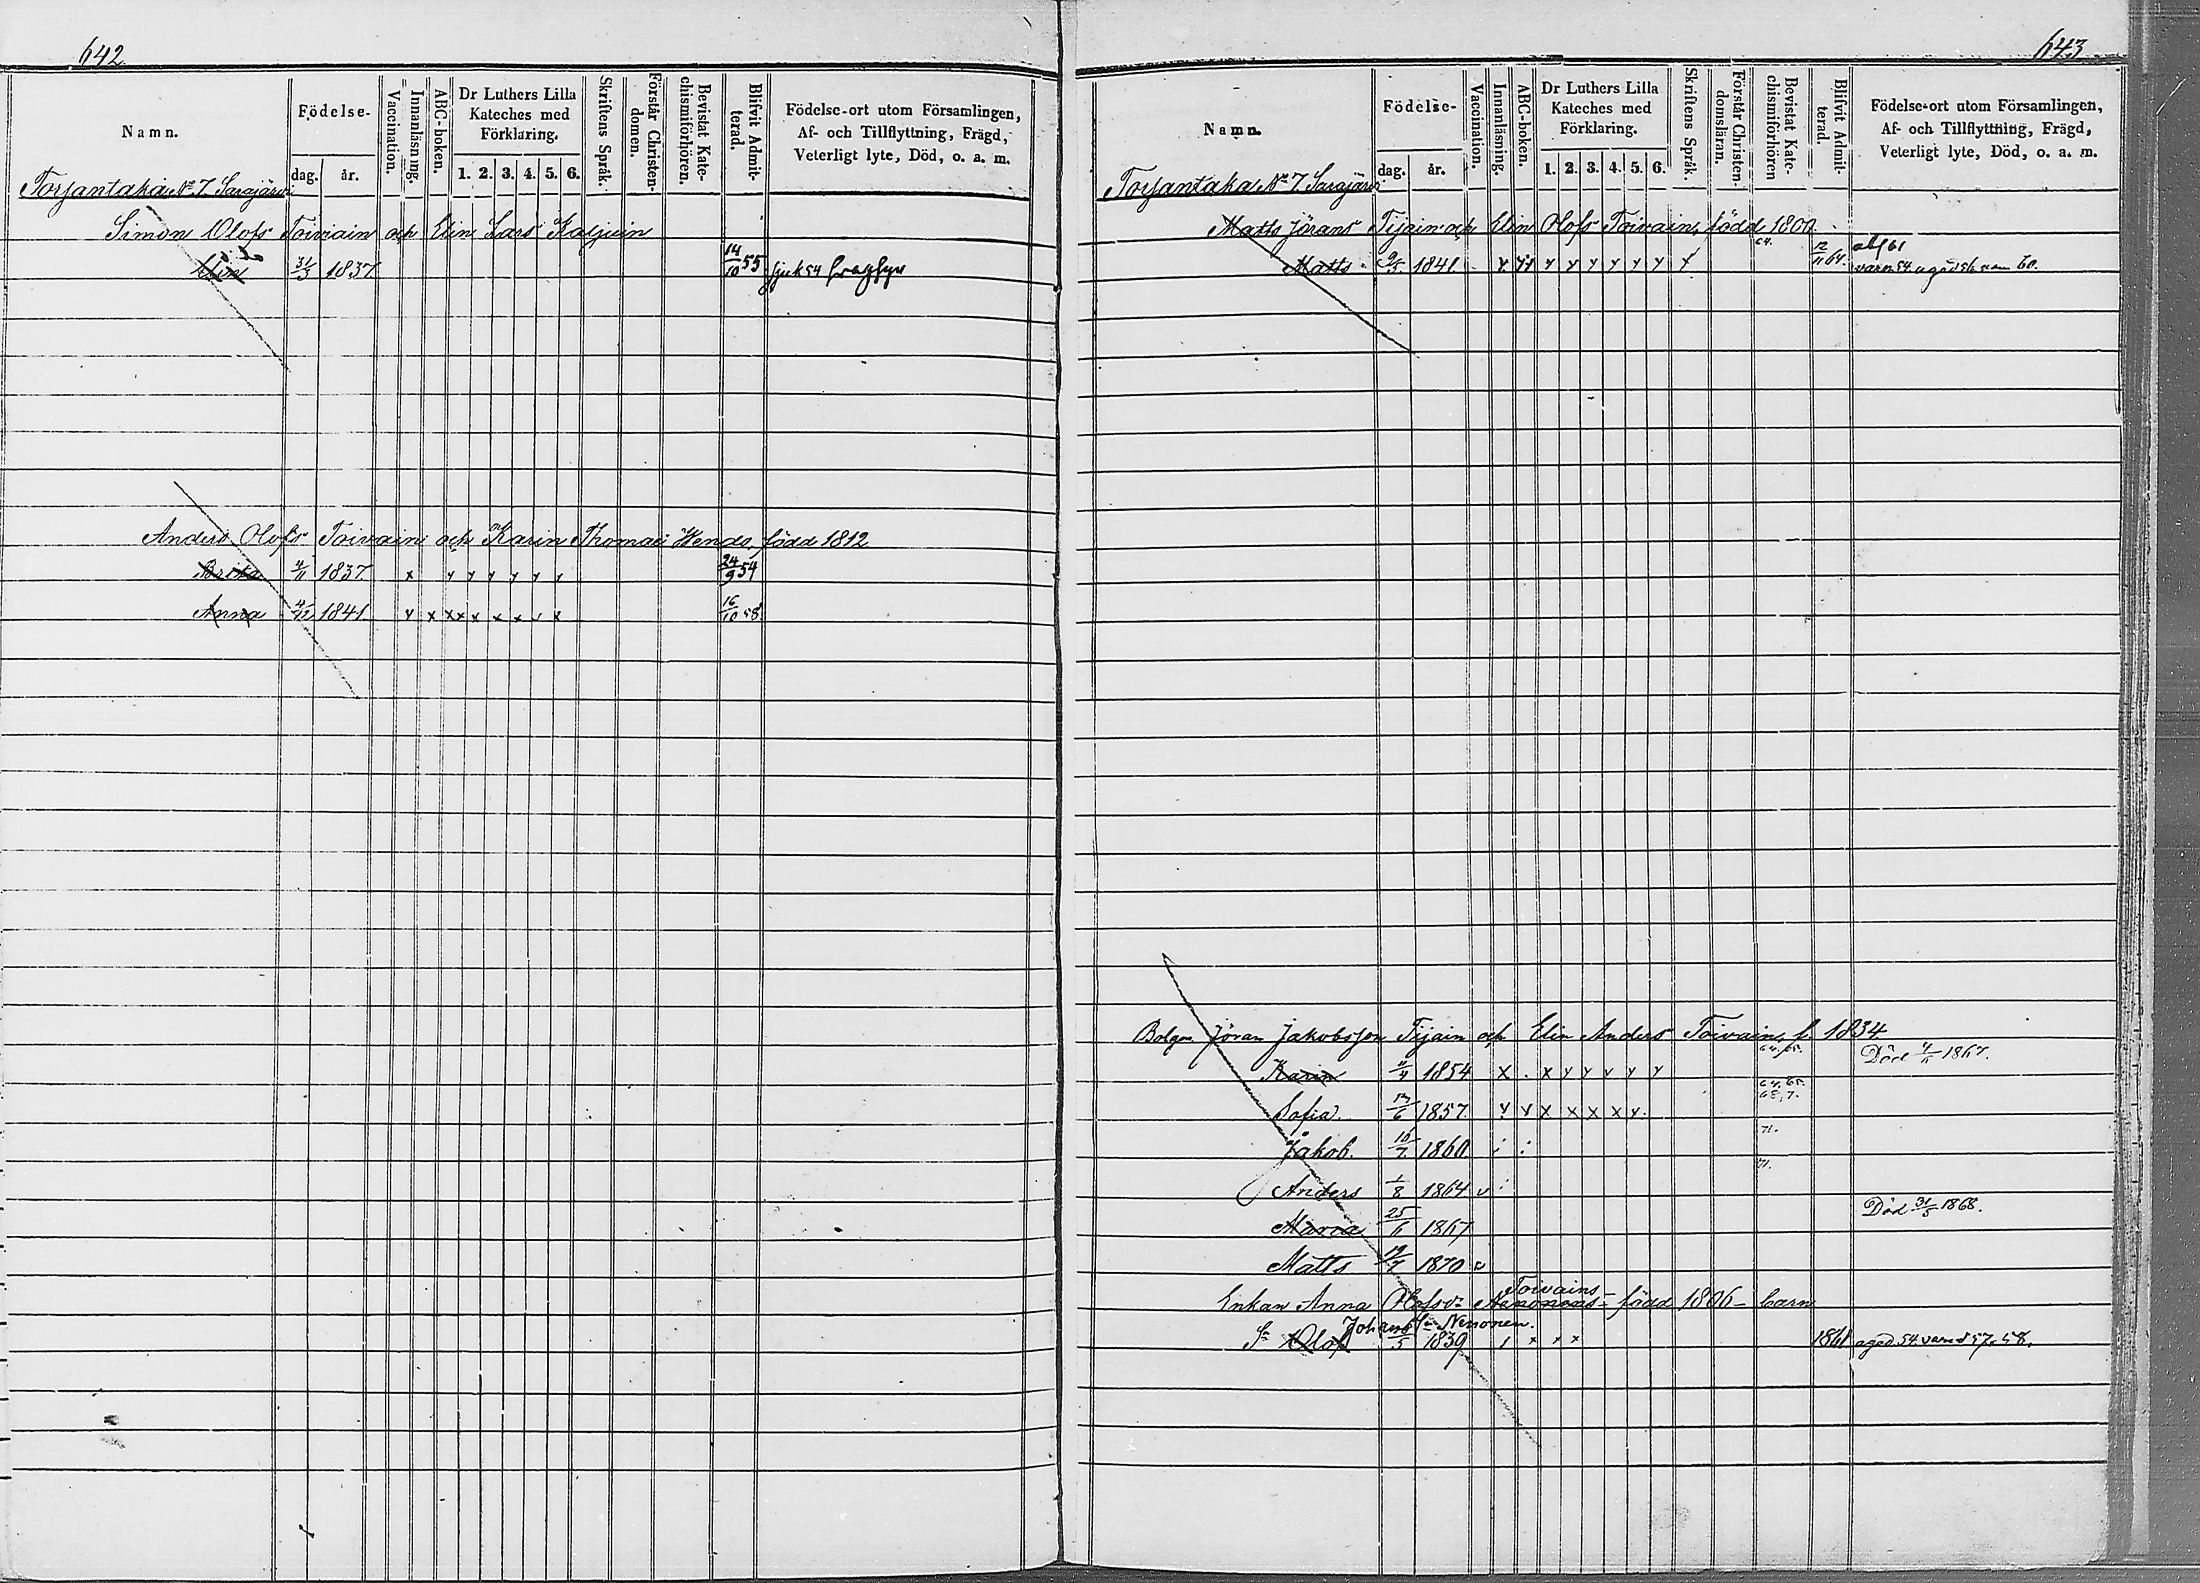 642
Namn.
Födelse-
dag. år.
Vaccination.
Innanläsning.
ABC-boken.
Dr Luthers Lilla
Kateches med
Förklaring.
1. 2. 3. 4. 5. 6.
Skriftens Språk.
Förstår Christen-
domen.
Bevistat Kate-
chismiförhören.
Blifvit Admit-
terad.
Födelse-ort utom Församlingen,
Af- och Tillflyttning, Frägd,
Veterligt lyte, Död, o. a. m.
Torjantaka No 7 Sarajärvi
Simon Olofs Toivain och Elin Lars Kaljuin
Elin 31/3 1837 14/10 55 sjuk 54
Anders Olofs Toivain och Karin Thomae Wendo, född 1812
Brita 4/11 1837 x y y y y y y 24/9 54
Anna 4/12 1841. y x x x x x x x 16/10 58.
643
Namn.
Födelse-
dag. år.
Vaccination.
Innanläsning.
ABC-boken.
Dr Luthers Lilla
Kateches med
Förklaring.
1. 2. 3. 4. 5. 6.
Skriftens Språk.
Förstår Christen-
domsläran.
Bevistat Kate-
chismiförhören
Blifvit Admit-
terad.
Födelse-ort utom Församlingen,
Af- och Tillflyttning, Frägd,
Veterligt lyte, Död, o. a. m.
Torjantaka No 7 Sarajärvi
Matts Jörans Tijain och Elin Olofs Toivain, född 1800.
Matts 2/5 1841 y y y y y y y y y y 64. 12/11 64.
varn 54
Bolgm Jöran Jakobsson Tijain och Elin Anders Toivain, f. 1834.
Karin 11/4 1854 x . x y y v y y 64, 65. Död 4/11 1867.
Sofia. 17/6 1857. y y x x x x y. 64, 65.
68, 7.
Jakob. 10/7 1860 71.
Anders 1/8 1864 v 71.
Maria 25/11 1867 Död 31/5 1868.
Matts 19/7 1870 v
Toivains
Enkan Anna Olofsdr Nenonens - född 1806 - barn
Johans Sn Nenonen.
Sn Olof /5 1839 1861 agod 54 varnd 57. 58.